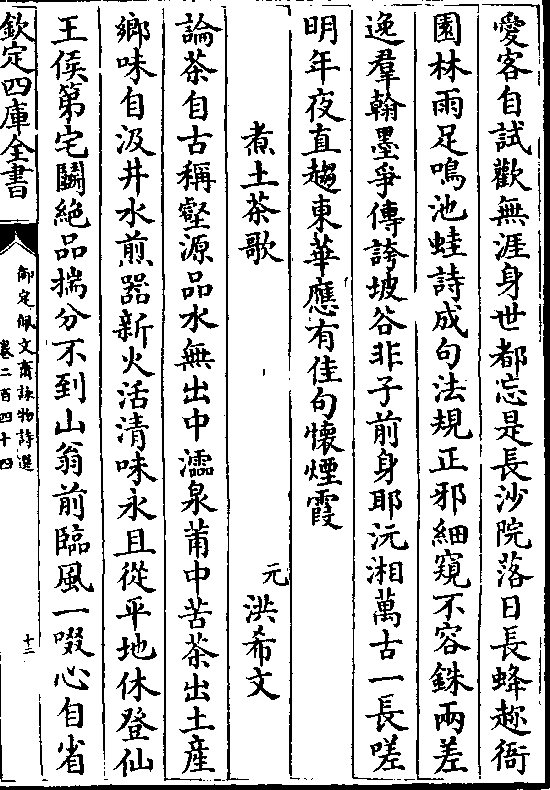 愛客自試歡無涯身世都忘是長沙院落日長蜂趂衙
園林雨足鳴池蛙詩成句法規正邪細窺不容銖兩差
逸羣翰墨爭傳誇坡谷非子前身耶沅湘萬古一長嗟
明年夜直趨東華應有佳句懷煙霞
煮土茶歌
元 洪希文
論茶自古稱壑源品水無出中濡泉莆中苦茶出土產
鄉味自汲井水煎器新火活清味永且從平地休登仙
王侯第宅鬬絶品揣分不到山翁前臨風一啜心自省
欽定四庫全書
御定佩文齋詠物詩選
卷二百四十四
十二